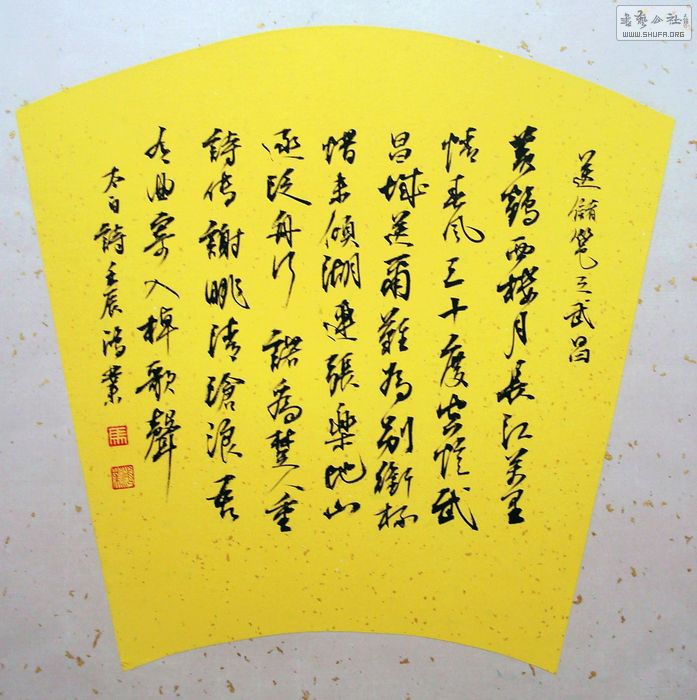 送儲邕之武昌
黄鶴西樓月長江萬里
情春風三十度空憶武
昌城送爾難為別銜杯
惜未傾湖連張樂地山
逐泛舟行 諾為楚人重
詩傳謝朓清滄浪吾
有曲寄入棹歌聲
太白詩 壬辰鴻業
書藝公社
WWW.SHUFA.ORG